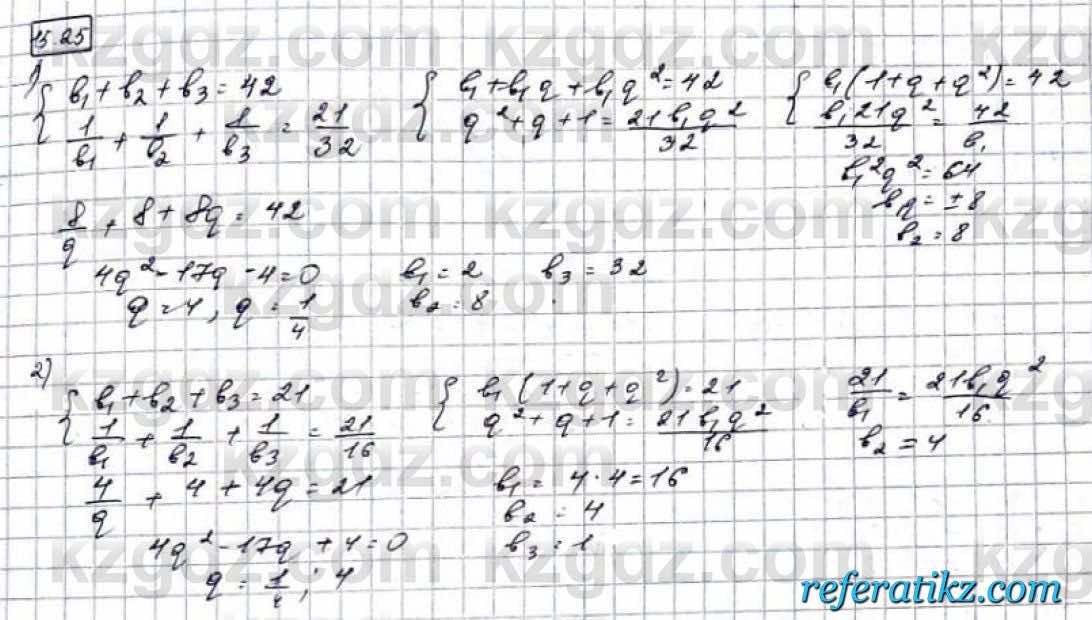 15.25
1)
{ b₁ + b₂ + b₃ = 42
1/b₁ + 1/b₂ + 1/b₃ = 21/32
{ b₁ + b₁q + b₁q² = 42
q² + q + 1 = 21b₁q²/32
{ b₁(1 + q + q²) = 42
b₁21q²/32 = 42/b₁
b₁²q² = 64
b₁q = ±8
b₂ = 8
8/q + 8 + 8q = 42
4q² - 17q - 4 = 0
q = 4, q = 1/4
b₁ = 2
b₂ = 8
b₃ = 32
2)
{ b₁ + b₂ + b₃ = 21
1/b₁ + 1/b₂ + 1/b₃ = 21/16
{ b₁(1 + q + q²) = 21
q² + q + 1 = 21b₁q²/16
21/b₁ = 21b₁q²/16
b₂ = 4
4/q + 4 + 4q = 21
4q² - 17q + 4 = 0
q = 1/4; 4
b₁ = 4·4 = 16
b₂ = 4
b₃ = 1
referatikz.com